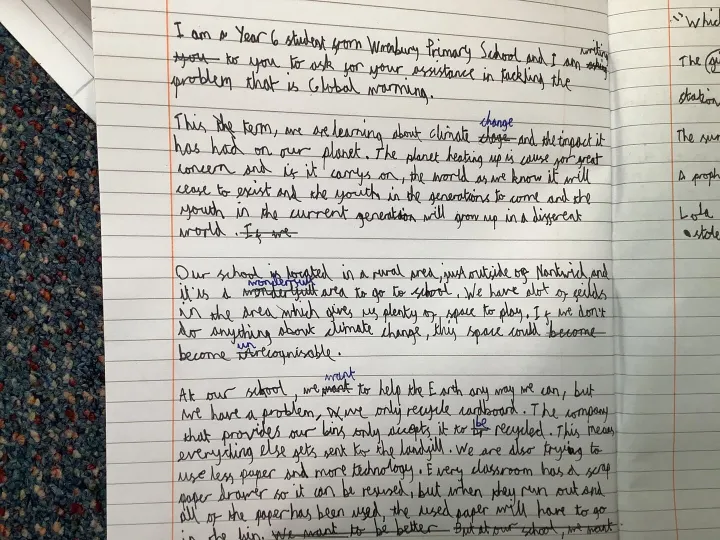 I am a Year 6 student from Wrenbury Primary School and I am writing
you to you to ask for your assistance in tackling the
problem that is Global warming.
This the term, we are learning about climate change and the impact it
has had on our planet. The planet heating up is cause for great
concern and is it carrys on, the world as we know it will
cease to exist and the youth in the generations to come and the
youth in the current generation will grow up in a different
world. If we
Our school is located in a rural area, just outside of Nantwich, and
it's a wonderfull area to go to school. We have alot of feilds
in the area which gives us plenty of space to play. If we don't
do anything about climate change, this space could become
become unrecognisable.
At our school, we want to help the Earth any way we can, but
we have a problem, we only recycle cardboard. The company
that provides our bins only accepts it to be recycled. This means
everything else gets sent to the landfill. We are also trying to
use less paper and more technology. Every classroom has a scrap
paper drawer so it can be reused, but when they run out and
all of the paper has been used, the used paper will have to go
in the bin. We want to be better. But at our school, we want
"Which
The
station
The sun
A proph
Lola
• stole